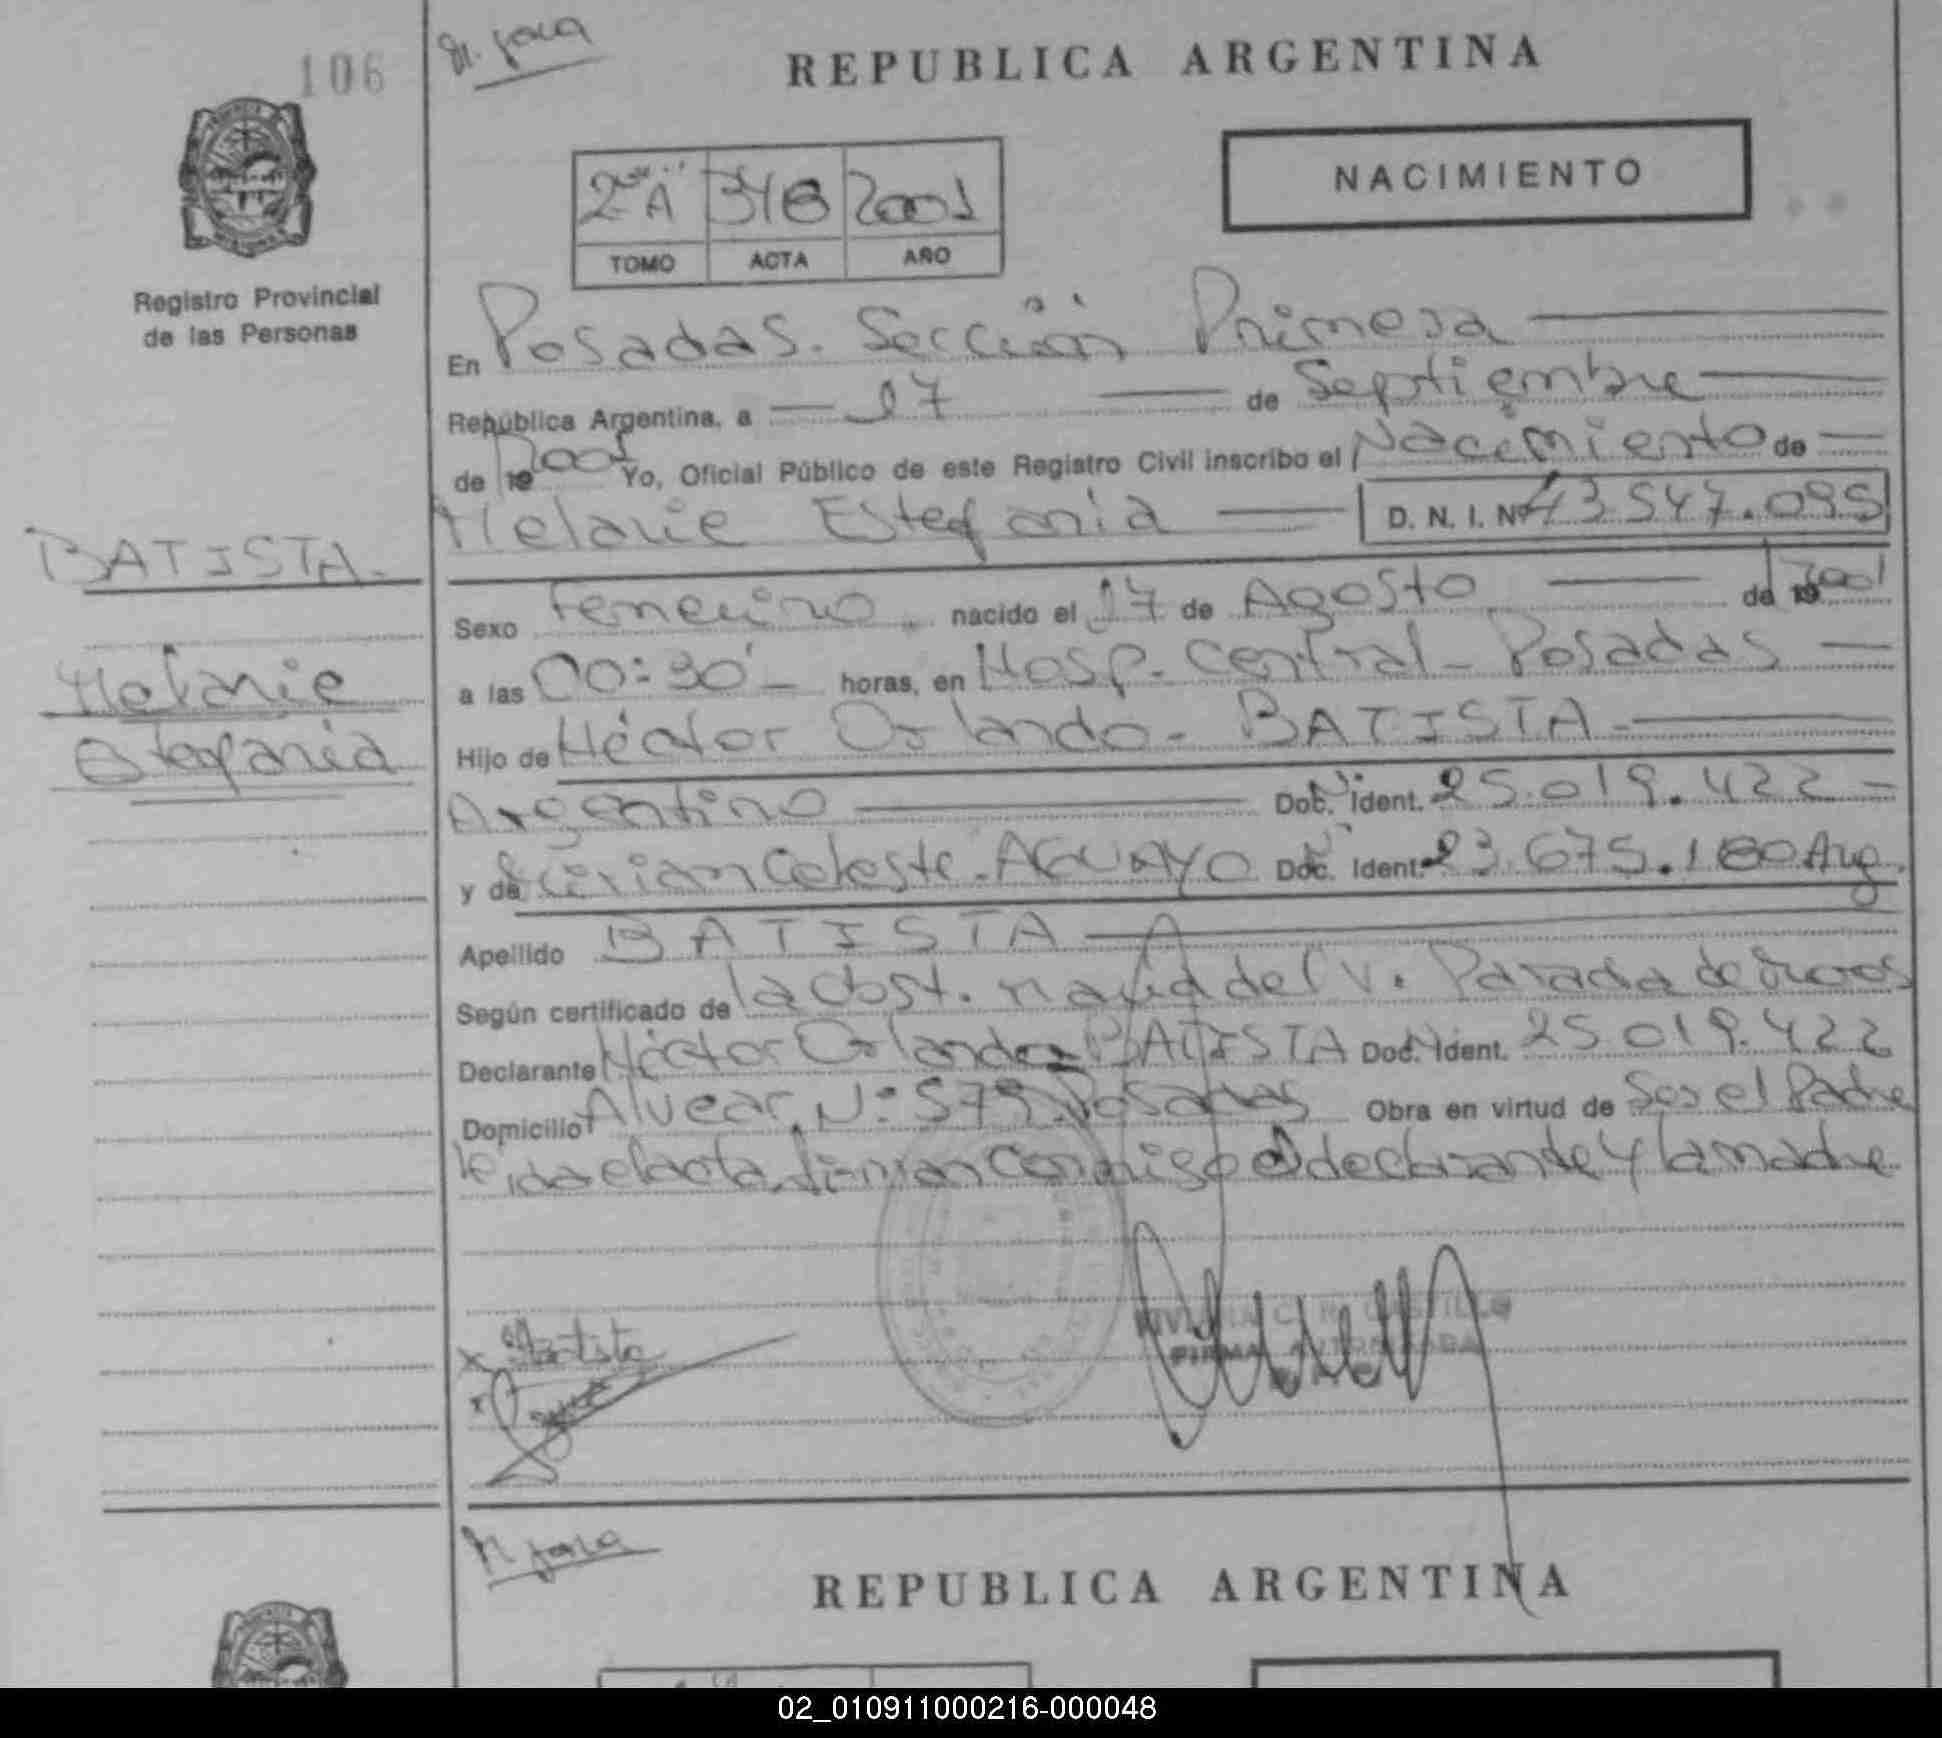 106
REPUBLICA ARGENTINA
NACIMIENTO
2do "A" 348 2001
TOMO ACTA AÑO
Registro Provincial
de las Personas
En Posadas. Sección Primera
República Argentina, a 17 de Septiembre
de 19 2001 Yo, Oficial Público de este Registro Civil inscribo el Nacimiento de
Melanie Estefania D. N. I. Nº 43.547.095
BATISTA.
Melanie
Estefania
Sexo Femenino. nacido el 17 de Agosto de 19 2001
a las 00:30' horas, en Hosp. Central - Posadas
Hijo de Héctor Orlando - BATISTA -
Argentino Doc. Ident. 25.019.422 -
y de Celeste. AGUAYO Doc. Ident. 23.675.180 Arg.
Apellido BATISTA
Según certificado de la Obst. María del V. Parada de
Declarante Héctor Orlando - BATISTA Doc. Ident. 25.019.422
Domicilio Alvear Nº 579. Posadas Obra en virtud de Ser el Padre
leida el acta, firman conmigo el declarante y la madre
Batista
CASTILLO
FIRMA AUTORIZADA
REPUBLICA ARGENTINA
02_010911000216-000048